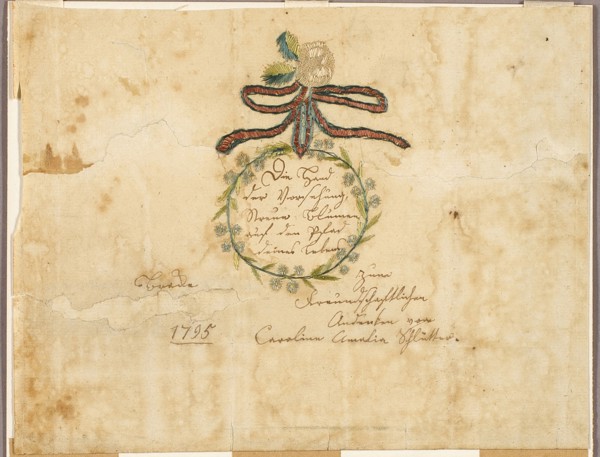 Die Hand
der Vorsehung,
Streue Blumen
auf den Pfad
deines Lebens
Zum
Freundschaftlichen
Andenken von
Caroline Amalia Schlütter.
1795